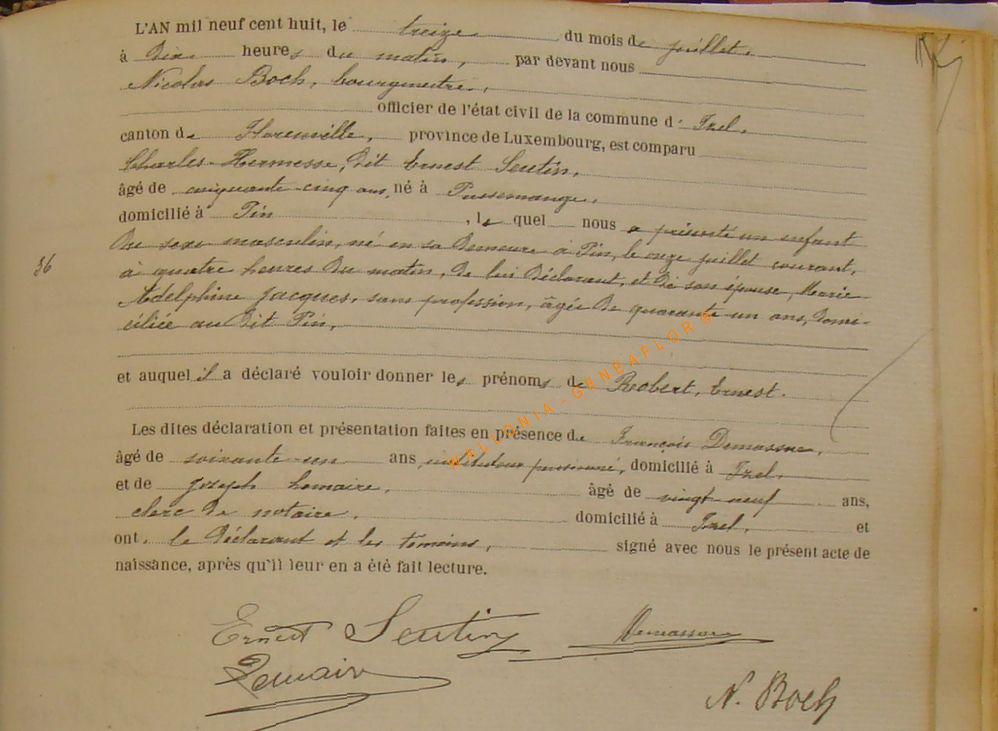 L'AN mil neuf cent huit, le treize du mois de juillet,
à Dix heures du matin, par devant nous
Nicolas Boch, bourgmestre,
officier de l'état civil de la commune d' Izel,
canton de Florenville, province de Luxembourg, est comparu
Charles-Hermesse, dit Ernest Seutin,
âgé de cinquante-cinq ans, né à Pussemange,
domicilié à Pin, lequel nous a présenté un enfant
Du sexe masculin, né en sa Demeure à Pin, le onze juillet courant,
36 à quatre heures Du matin, De lui Déclarant, et De son épouse, Marie-
Adelphine Jacques, sans profession, âgée De quarante un ans, Domi-
ciliée au Dit Pin,
et auquel il a déclaré vouloir donner les prénoms de Robert, Ernest.
Les dites déclaration et présentation faites en présence de François Demasme,
âgé de soixante-un ans, instituteur pensionné, domicilié à Izel,
et de Joseph Lemaire, âgé de vingt neuf ans,
clerc De notaire, domicilié à Izel, et
ont, le Déclarant et les témoins, signé avec nous le présent acte de
naissance, après qu'il leur en a été fait lecture.
Ernest Seutin
Lemaire
N. Boch
WALLONIA-GENEAFLORE